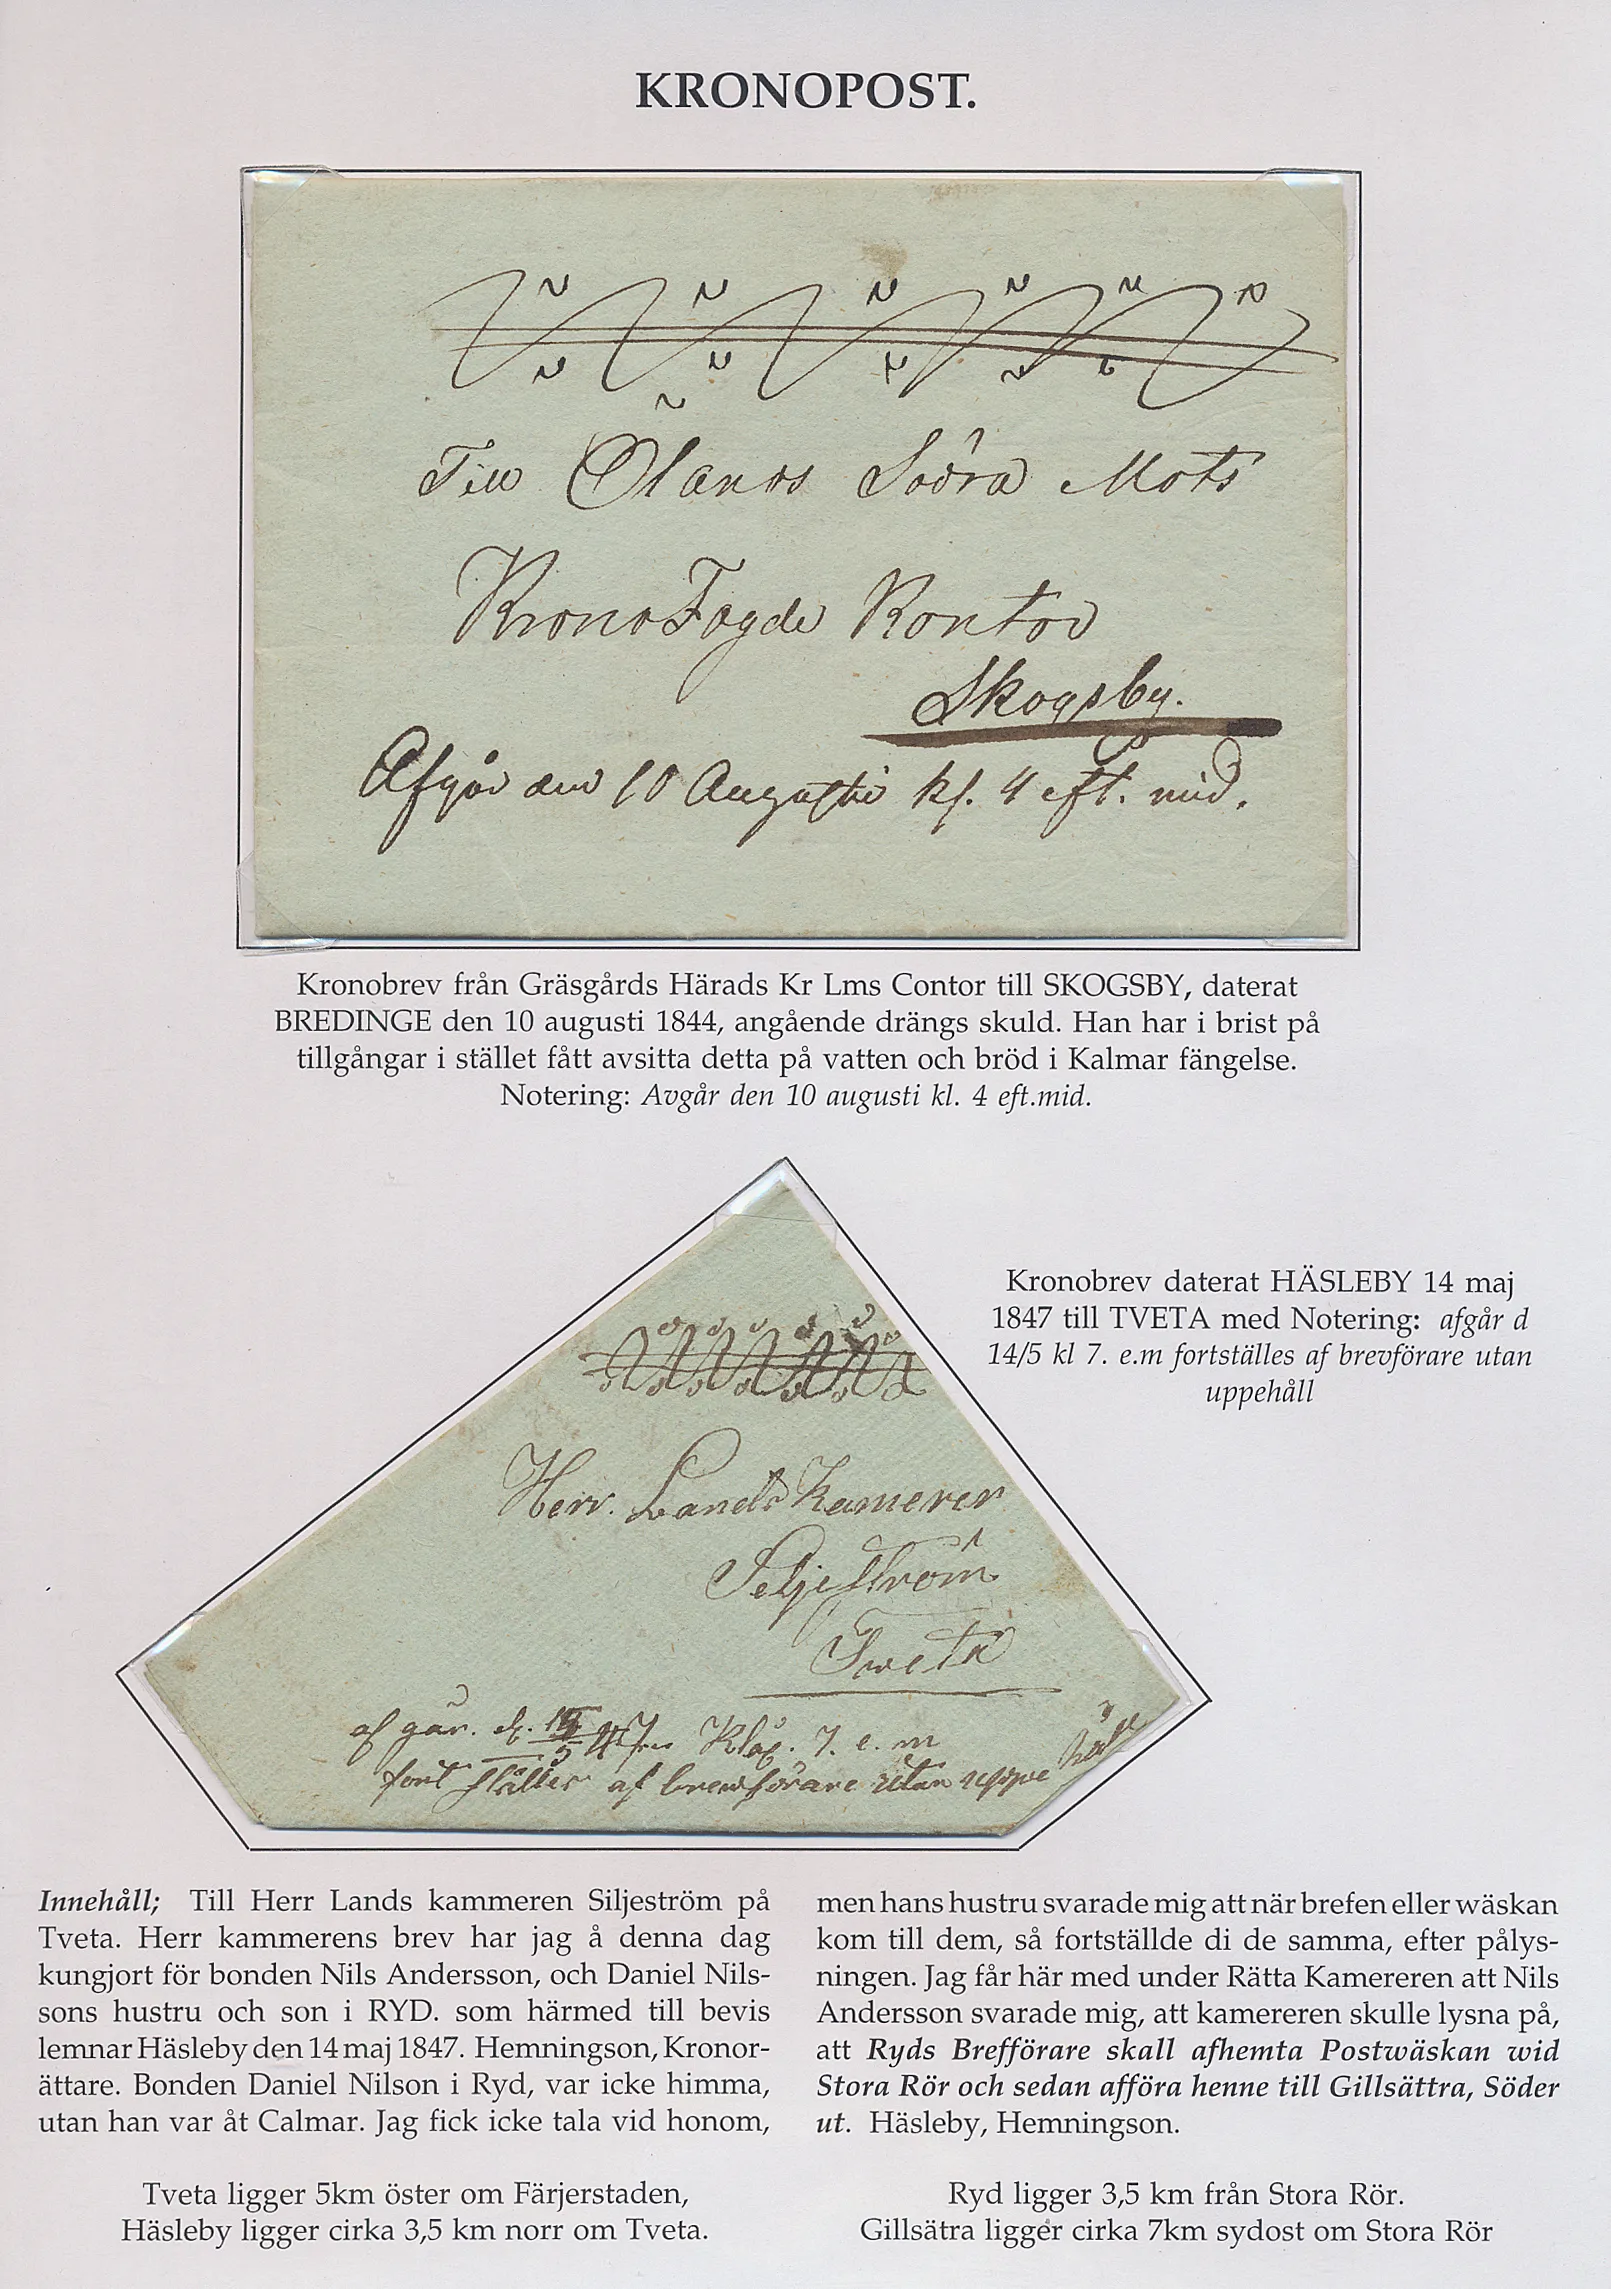 KRONOPOST.
Till Ölands Södra Mots
KronoFogde Kontor
Skogsby.
Afgår den 10 Augusti kl. 4 eft. mid.
Kronobrev från Gräsgårds Härads Kr Lms Contor till SKOGSBY, daterat
BREDINGE den 10 augusti 1844, angående drängs skuld. Han har i brist på
tillgångar i stället fått avsitta detta på vatten och bröd i Kalmar fängelse.
Notering: Avgår den 10 augusti kl. 4 eft.mid.
Kronobrev daterat HÄSLEBY 14 maj
1847 till TVETA med Notering: afgår d
14/5 kl 7. e.m fortställes af brevförare utan
uppehåll
Herr. Lands Kamerer
Seljeström
Tweta
af går. d. 14/5 Klåc. 7. e. m
fort ställes af brewförare utan uppe håll
Innehåll; Till Herr Lands kammeren Siljeström på
Tveta. Herr kammerens brev har jag å denna dag
kungjort för bonden Nils Andersson, och Daniel Nils-
sons hustru och son i RYD. som härmed till bevis
lemnar Häsleby den 14 maj 1847. Hemningson, Kronor-
ättare. Bonden Daniel Nilson i Ryd, var icke himma,
utan han var åt Calmar. Jag fick icke tala vid honom,
men hans hustru svarade mig att när brefen eller wäskan
kom till dem, så fortställde di de samma, efter pålys-
ningen. Jag får här med under Rätta Kamereren att Nils
Andersson svarade mig, att kamereren skulle lysna på,
att Ryds Brefförare skall afhemta Postwäskan wid
Stora Rör och sedan afföra henne till Gillsättra, Söder
ut. Häsleby, Hemningson.
Tveta ligger 5km öster om Färjerstaden,
Häsleby ligger cirka 3,5 km norr om Tveta.
Ryd ligger 3,5 km från Stora Rör.
Gillsätra ligger cirka 7km sydost om Stora Rör